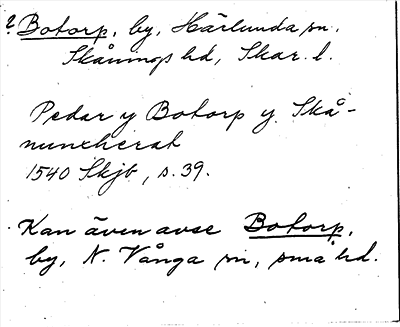 ? Botorp, by, Härlunda sn.
Skånings hd, Skar. l.
Pedar y Botorp y Skå-
nunxherat
1540 Skjb, s. 39.
Kan även avse Botorp,
by, N. Vånga sn, sma hd.